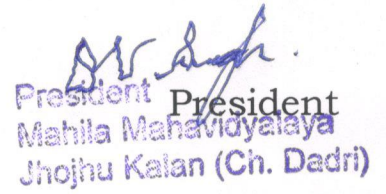 President
President
Mahila Mahavidyalaya
Jhojhu Kalan (Ch. Dadri)